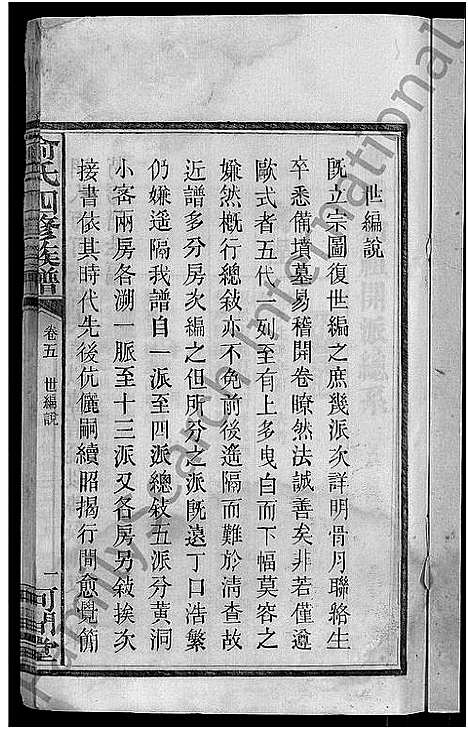 世編說
既立宗圖復世編之庶幾派次詳明骨月聯絡生
卒悉備墳墓易稽開卷瞭然法誠善矣非若僅遵
歐式者五代一列至有上多曳白而下幅莫容之
嫌然槪行總敍亦不免前後遙隔而難於清查故
近譜多分房次編之但所分之派既遠丁口浩繁
仍嫌遙隔我譜自一派至四派總敍五派分黃洞
小客兩房各溯一脈至十三派又各房另敍挨次
接書依其時代先後伉儷嗣續昭揭行間愈覺簡
俞氏四修族譜
卷五 世編說
一
河間堂
FamilySearch International